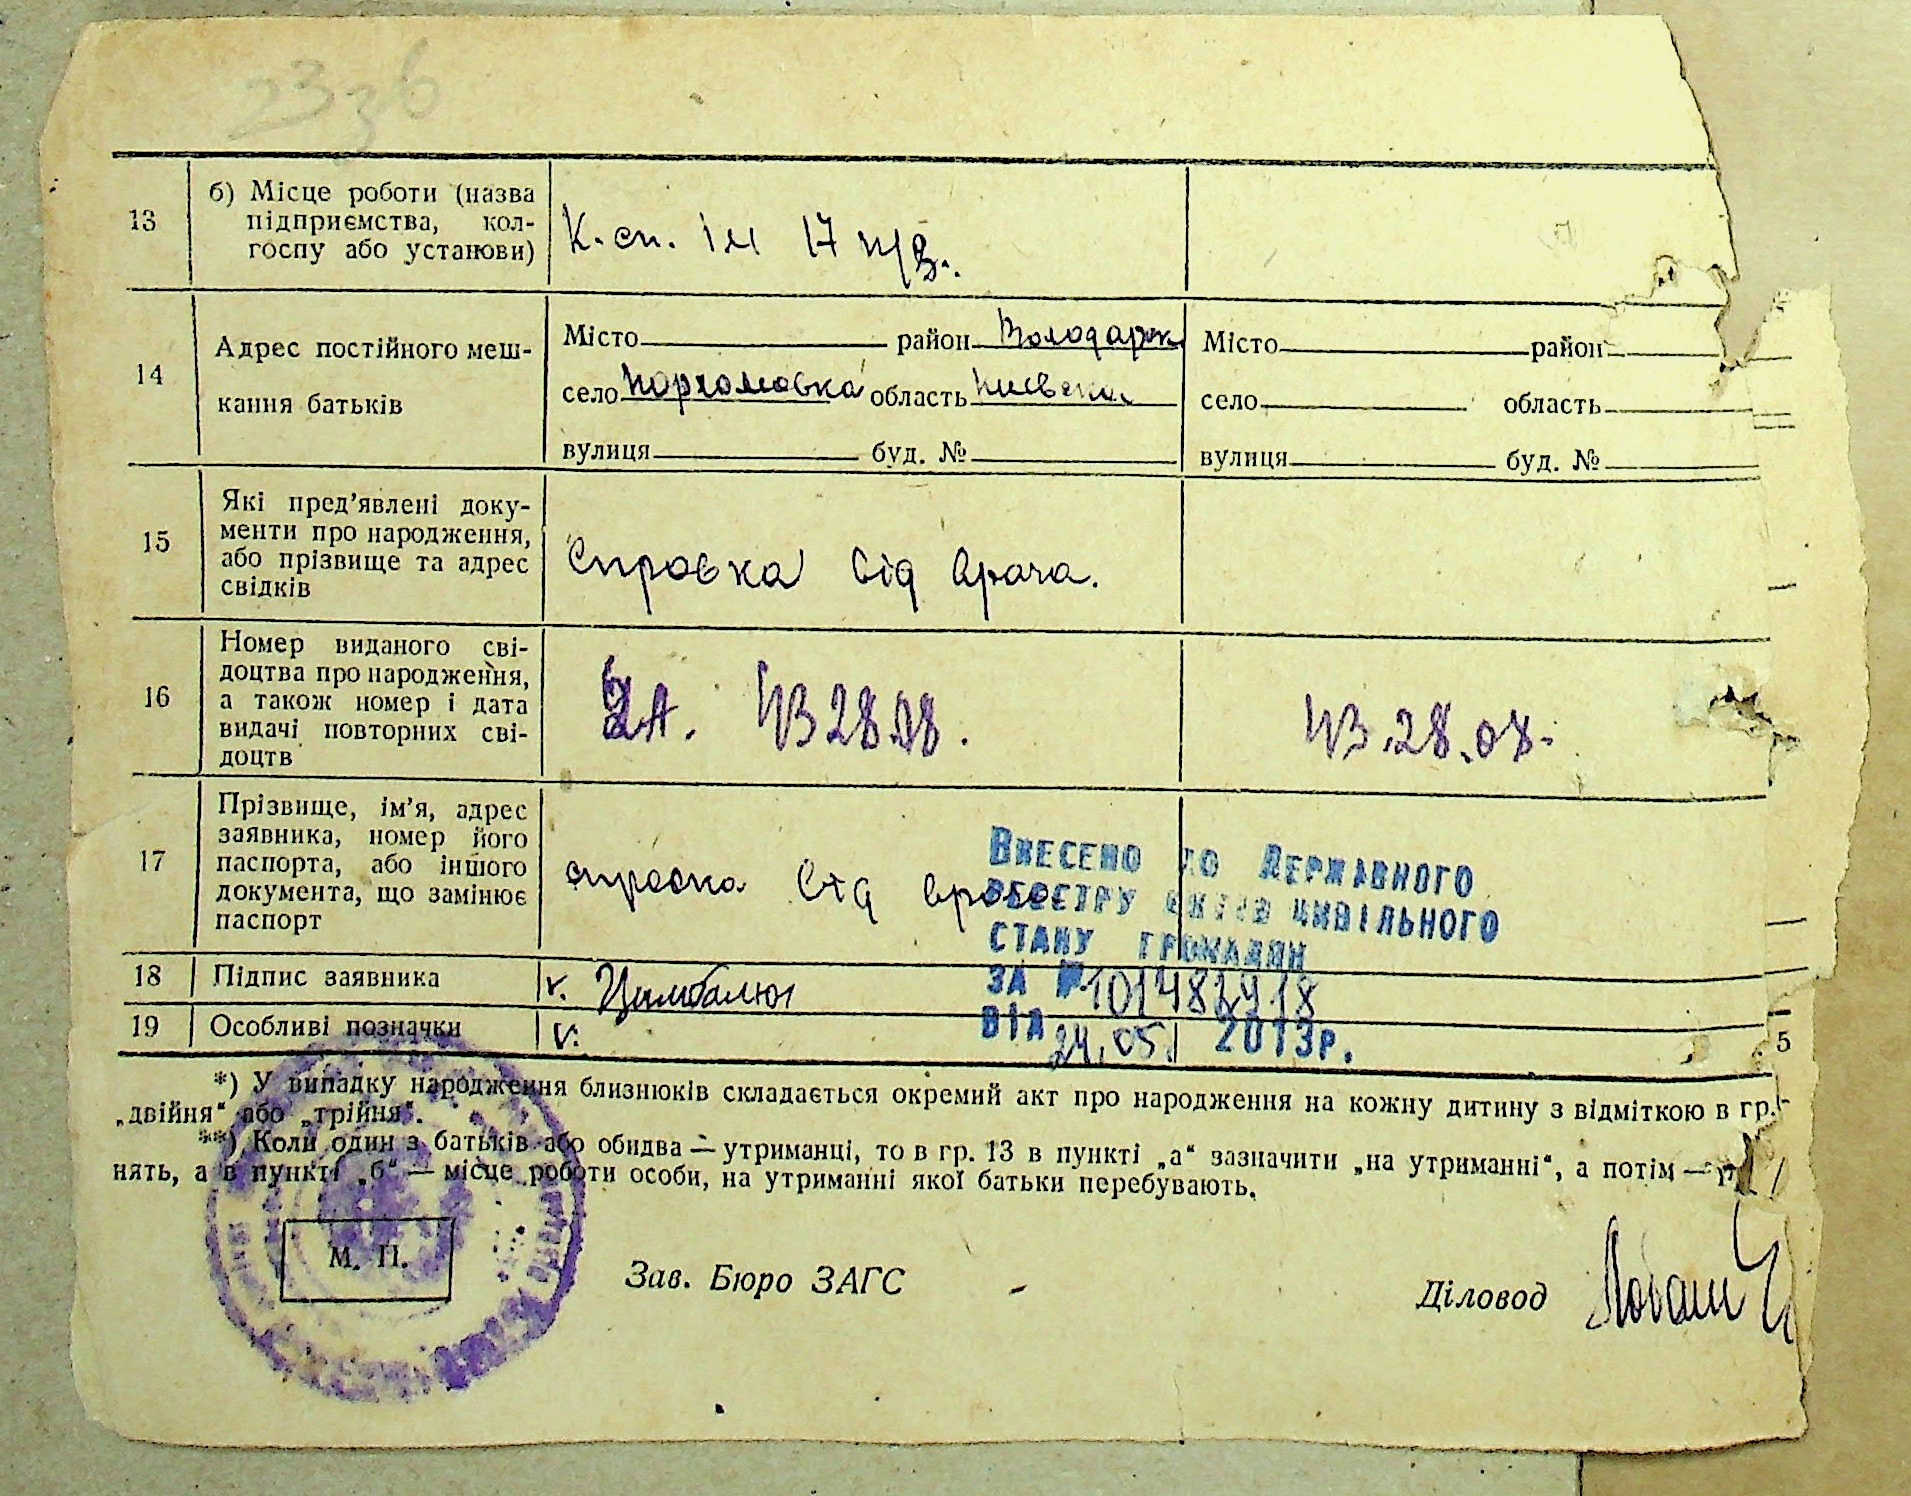 2336
13
б) Місце роботи (назва
підприємства, кол-
госпу або установи)
К-сп. ім 17 п/з.
14
Адрес постійного меш-
кання батьків
Місто район Володарск
село Порхомовка область Київська
вулиця буд. №
Місто район
село область
вулиця буд. №
15
Які пред’явлені доку-
менти про народження,
або прізвище та адрес
свідків
Справка від врача.
16
Номер виданого сві-
доцтва про народження,
а також номер і дата
видачі повторних сві-
доцтв
17
Прізвище, ім’я, адрес
заявника, номер його
паспорта, або іншого
документа, що замінює
паспорт
справка від врача
Внесено до Державного
реєстру актів цивільного
стану громадян
за № 10148
від 24.05. 2013р.
18 Підпис заявника
v. Цимбалюк
19 Особливі позначки
v.
5
*) У випадку народження близнюків складається окремий акт про народження на кожну дитину з відміткою в гр.
„двійня“ або „трійня“.
**) Коли один з батьків або обидва — утриманці, то в гр. 13 в пункті „а“ зазначити „на утриманні“, а потім —
нять, а в пункті „б“ — місце роботи особи, на утриманні якої батьки перебувають.
М. П.
Зав. Бюро ЗАГС
Діловод